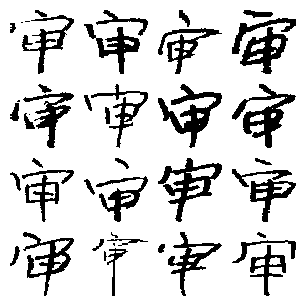 审审审审
审审审审
审审审审
审审审审